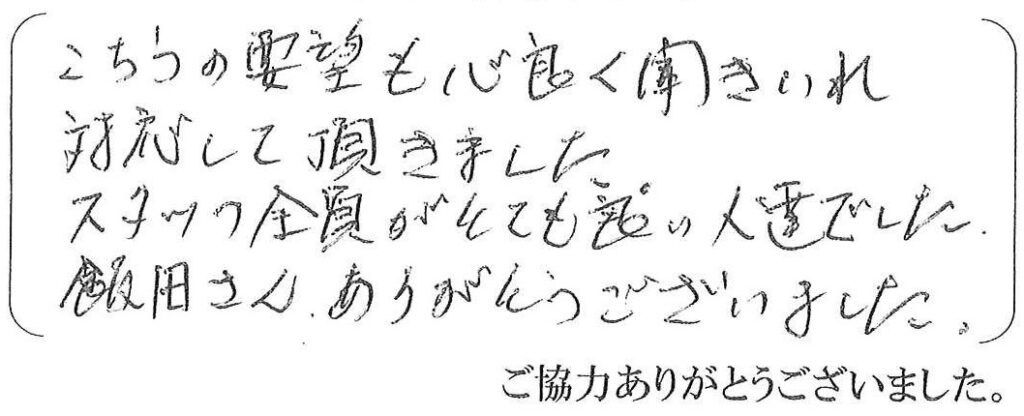 こちらの要望も心良く聞きいれ
対応して頂きました
スタッフ全員がとても良い人達でした.
飯田さん.ありがとうございました。
ご協力ありがとうございました。